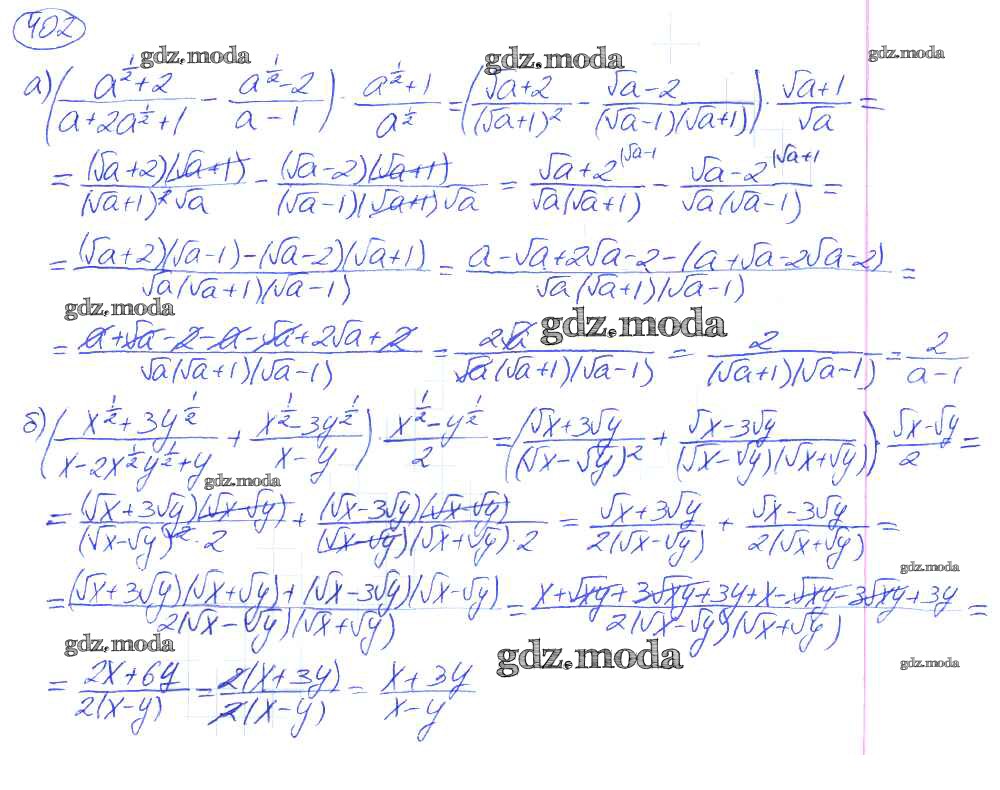 402
gdz.moda gdz.moda gdz.moda
а) ((a^(1/2)+2)/(a+2a^(1/2)+1) - (a^(1/2)-2)/(a-1)) · (a^(1/2)+1)/a^(1/2) = ((√a+2)/(√a+1)^2 - (√a-2)/((√a-1)(√a+1))) · (√a+1)/√a =
= (√a+2)(√a+1)/((√a+1)^2 √a) - (√a-2)(√a+1)/((√a-1)(√a+1)√a) = (√a+2)^(|√a-1)/(√a(√a+1)) - (√a-2)^(|√a+1)/(√a(√a-1)) =
= ((√a+2)(√a-1)-(√a-2)(√a+1))/(√a(√a+1)(√a-1)) = (a-√a+2√a-2-(a+√a-2√a-2))/(√a(√a+1)(√a-1)) =
gdz.moda gdz.moda
= (a+√a-2-a-√a+2√a+2)/(√a(√a+1)(√a-1)) = 2√a/(√a(√a+1)(√a-1)) = 2/((√a+1)(√a-1)) = 2/(a-1)
б) ((x^(1/2)+3y^(1/2))/(x-2x^(1/2)y^(1/2)+y) + (x^(1/2)-3y^(1/2))/(x-y)) · (x^(1/2)-y^(1/2))/2 = ((√x+3√y)/(√x-√y)^2 + (√x-3√y)/((√x-√y)(√x+√y))) · (√x-√y)/2 =
gdz.moda
= (√x+3√y)(√x-√y)/((√x-√y)^2·2) + (√x-3√y)(√x-√y)/((√x-√y)(√x+√y)·2) = (√x+3√y)/(2(√x-√y)) + (√x-3√y)/(2(√x+√y)) =
gdz.moda
= ((√x+3√y)(√x+√y)+(√x-3√y)(√x-√y))/(2(√x-√y)(√x+√y)) = (x+√xy+3√xy+3y+x-√xy-3√xy+3y)/(2(√x-√y)(√x+√y)) =
gdz.moda gdz.moda gdz.moda
= (2x+6y)/(2(x-y)) = 2(x+3y)/(2(x-y)) = (x+3y)/(x-y)